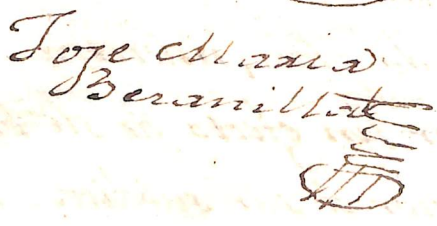 Joze Maria
Beranilla